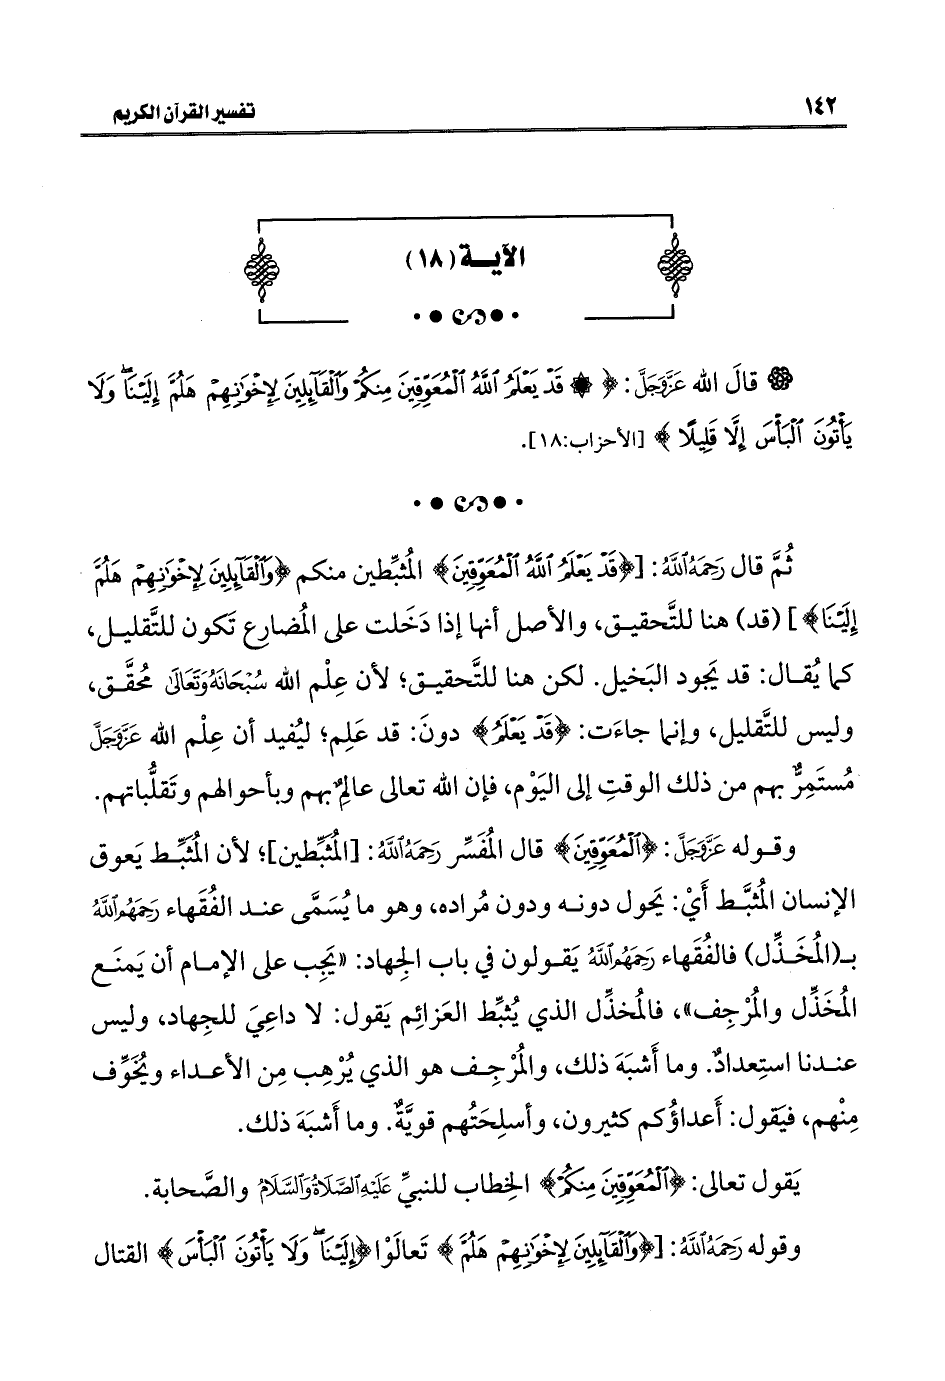 ١٤٢
تفسير القرآن الكريم
الآيــة (١٨)
قالَ الله عَزَّوَجَلَّ: ﴿ ۞ قَدْ يَعْلَمُ ٱللَّهُ ٱلْمُعَوِّقِينَ مِنكُمْ وَٱلْقَآئِلِينَ لِإِخْوَٰنِهِمْ هَلُمَّ إِلَيْنَا ۖ وَلَا
يَأْتُونَ ٱلْبَأْسَ إِلَّا قَلِيلًا ﴾ [الأحزاب:١٨].
ثُمَّ قال رَحِمَهُ ٱللَّهُ: [﴿قَدْ يَعْلَمُ ٱللَّهُ ٱلْمُعَوِّقِينَ﴾ المُثبِّطين منكم ﴿وَٱلْقَآئِلِينَ لِإِخْوَٰنِهِمْ هَلُمَّ
إِلَيْنَا﴾] (قد) هنا للتَّحقيـق، والأصل أنها إذا دَخَلت على المُضارع تَكون للتَّقليـل،
كما يُقـال: قد يَجود البَخيل. لكن هنا للتَّحقيـق؛ لأن عِلْم الله سُبْحَانَهُ وَتَعَالَىٰ محُقَّـق،
وليس للتَّقليل، وإنما جاءَت: ﴿قَدْ يَعْلَمُ﴾ دونَ: قد عَلِم؛ ليُفيد أن عِلْم الله عَزَّوَجَلَّ
مُستَمِرٌّ بهم من ذلك الوقتِ إلى اليَوْم، فإن الله تعالى عالِمٌ بهم وبأحوالهم وتَقلُّباتهم.
وقـوله عَزَّوَجَلَّ: ﴿ٱلْمُعَوِّقِينَ﴾ قال المُفَسِّر رَحِمَهُ ٱللَّهُ: [المُثَبِّطين]؛ لأن المُثبِّـط يَعوق
الإنسان المُثبَّـط أَيْ: يَحول دونـه ودون مُراده، وهو ما يُسَمَّى عنـد الفُقَهاء رَحِمَهُمُ ٱللَّهُ
بـ(المُخَـذِّل) فالفُقَهاء رَحِمَهُمُ ٱللَّهُ يَقـولون في باب الجِهاد: «يَجِب على الإمـام أن يَمنَـع
المُخَذِّل والمُرْجِف»، فالمُخذِّل الذي يُثبِّط العَزائِم يَقول: لا داعِيَ للجِهاد، وليس
عنـدنا استِعدادٌ. وما أَشبَهَ ذلك، والمُرْجِـف هو الذي يُرْهِب مِن الأعـداء ويُخَوِّف
مِنْهم، فيَقول: أَعداؤُكم كثيرون، وأَسلِحَتُهم قويَّةٌ. وما أَشبَهَ ذلك.
يَقول تعالى: ﴿ٱلْمُعَوِّقِينَ مِنكُمْ﴾ الخِطاب للنبيِّ عَلَيْهِ ٱلصَّلَاةُ وَٱلسَّلَامُ والصَّحابة.
وقوله رَحِمَهُ ٱللَّهُ: [﴿وَٱلْقَآئِلِينَ لِإِخْوَٰنِهِمْ هَلُمَّ ﴾ تَعالَوْا ﴿إِلَيْنَا ۖ وَلَا يَأْتُونَ ٱلْبَأْسَ ﴾ القتال